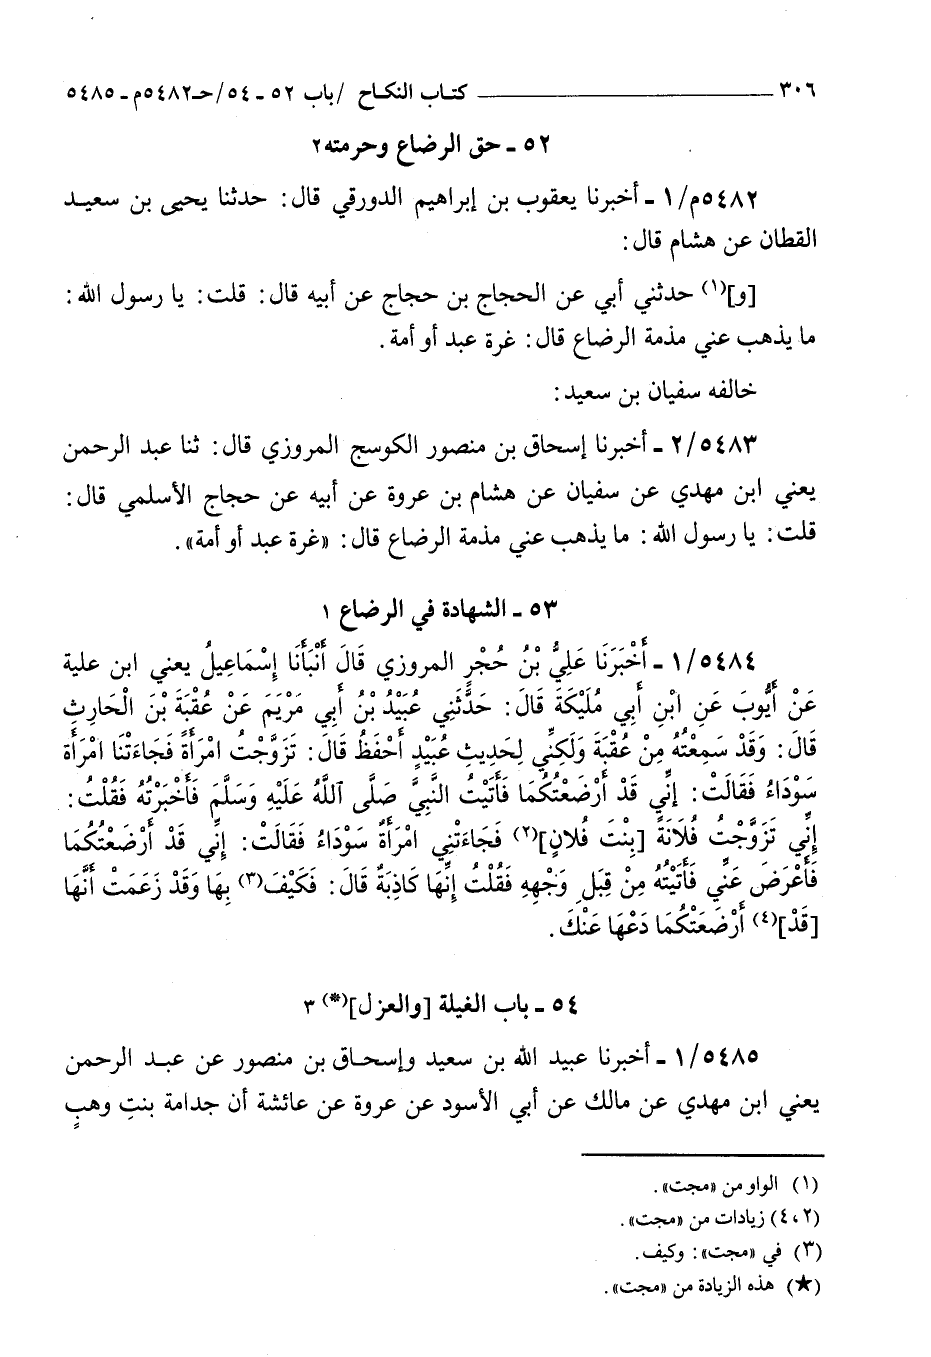 ٣٠٦ ــــــــــــ كتاب النكاح /باب ٥٢ ـ ٥٤/حـ٥٤٨٢م ـ ٥٤٨٥
٥٢ ـ حق الرضاع وحرمته٢
٥٤٨٢م/١ ـ أخبرنا يعقوب بن إبراهيم الدورقي قال: حدثنا يحيى بن سعيد
القطان عن هشام قال:
[و](١) حدثني أبي عن الحجاج بن حجاج عن أبيه قال: قلت: يا رسول الله:
ما يذهب عني مذمة الرضاع قال: غرة عبد أو أمة.
خالفه سفيان بن سعيد:
٢/٥٤٨٣ ـ أخبرنا إسحاق بن منصور الكوسج المروزي قال: ثنا عبد الرحمن
يعني ابن مهدي عن سفيان عن هشام بن عروة عن أبيه عن حجاج الأسلمي قال:
قلت: يا رسول الله: ما يذهب عني مذمة الرضاع قال: «غرة عبد أو أمة».
٥٣ ـ الشهادة في الرضاع ١
١/٥٤٨٤ ـ أَخْبَرَنَا عَلِيُّ بْنُ حُجْرٍ المروزي قَالَ أَنْبَأَنَا إِسْمَاعِيلُ يعني ابن علية
عَنْ أَيُّوبَ عَنِ ابْنِ أَبِي مُلَيْكَةَ قَالَ: حَدَّثَنِي عُبَيْدُ بْنُ أَبِي مَرْيَمَ عَنْ عُقْبَةَ بْنَ الْحَارِثِ
قَالَ: وَقَدْ سَمِعْتُهُ مِنْ عُقْبَةَ وَلَكِنِّي لِحَدِيثِ عُبَيْدٍ أَحْفَظُ قَالَ: تَزَوَّجْتُ امْرَأَةً فَجَاءَتْنَا امْرَأَة
سَوْدَاءُ فَقَالَتْ: إِنِّي قَدْ أَرْضَعْتُكُمَا فَأَتَيْتُ النَّبِيَّ صَلَّى اللَّهُ عَلَيْهِ وَسَلَّمَ فَأَخْبَرْتُهُ فَقُلْتُ:
إِنِّي تَزَوَّجْتُ فُلَانَةً [بِنْتَ فُلانٍ](٢) فَجَاءَتْنِي امْرَأَةٌ سَوْدَاءُ فَقَالَتْ: إِنِّي قَدْ أَرْضَعْتُكُمَا
فَأَعْرَضَ عَنِّي فَأَتَيْتُهُ مِنْ قِبَلِ وَجْهِهِ فَقُلْتُ إِنَّهَا كَاذِبَةٌ قَالَ: فَكَيْفَ(٣) بِهَا وَقَدْ زَعَمَتْ أَنَّهَا
[قَدْ](٤) أَرْضَعَتْكُمَا دَعْهَا عَنْكَ.
٥٤ ـ باب الغيلة [والعزل](*) ٣
١/٥٤٨٥ ـ أخبرنا عبيد الله بن سعيد وإسحاق بن منصور عن عبد الرحمن
يعني ابن مهدي عن مالك عن أبي الأسود عن عروة عن عائشة أن جدامة بنتِ وهبٍ
(١) الواو من «مجت».
(٢، ٤) زيادات من «مجت».
(٣) في «مجت»: وكيف.
(★) هذه الزيادة من «مجت».